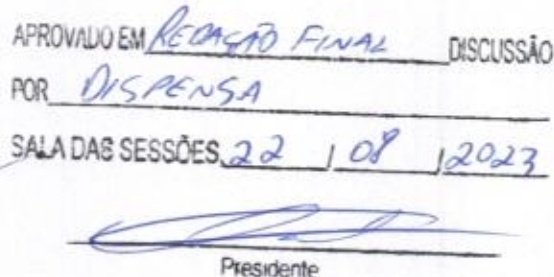 APROVADO EM REDAÇÃO FINAL DISCUSSÃO
POR DISPENSA
SALA DAS SESSÕES 22 / 08 / 2023
Presidente